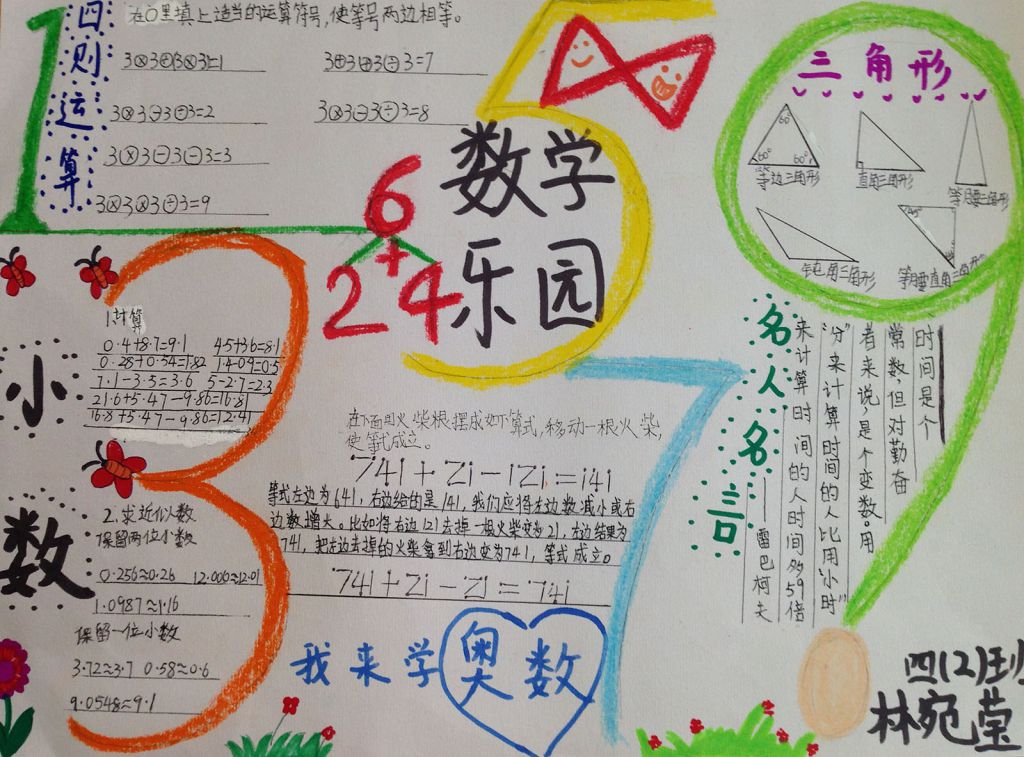 四则运算
在○里填上适当的运算符号,使等号两边相等。
3⊗3⊕3⊗3=1
3⊕3⊕3⊖3=7
3⊗3⊖3⊖3=2
3⊗3⊖3⊕3=8
3⊗3⊖3⊖3=3
3⊗3⊗3⊕3=9
6
+
2 4
数学
乐园
三角形
60°
60° 60°
等边三角形
直角三角形
等腰三角形
钝角三角形
等腰直角三角形
小数
1.计算
0.4+8.7=9.1 4.5+3.6=8.1
0.28+0.54=1.82 1.4-0.9=0.5
7.1-3.5=3.6 5-2.7=2.3
21.6+5.47-9.86=16.81
16.8+5.47-9.86=12.41
2.求近似数
保留两位小数
0.256≈0.26 12.006≈12.01
1.0987≈1.16
保留一位小数
3.72≈3.7 0.58≈0.6
9.0548≈9.1
在下面用火柴根摆成如下算式,移动一根火柴,
使等式成立。
741+21-121=141
等式左边为641,右边给的是141,我们应将左边数减小或右
边数增大。比如将右边121去掉一根火柴变为21,左边结果为
741,把左边去掉的火柴拿到右边变为741,等式成立。
741+21-21=741
我来学奥数
名人名言
时间是个
常数,但对勤奋
者来说,是个变数。用
“分”来计算时间的人比用“小时”
来计算时间的人时间多59倍
——雷巴柯夫
四(2)班
林宛莹
1
5
9
3
7